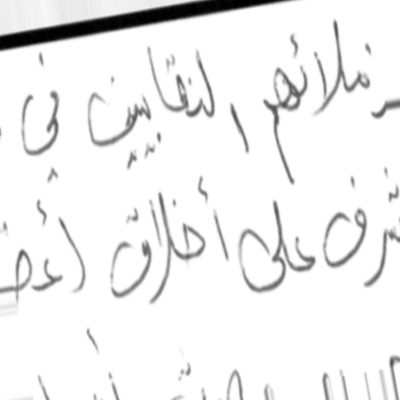 زملائهم النقابيين في
شرف على أخلاق أعض